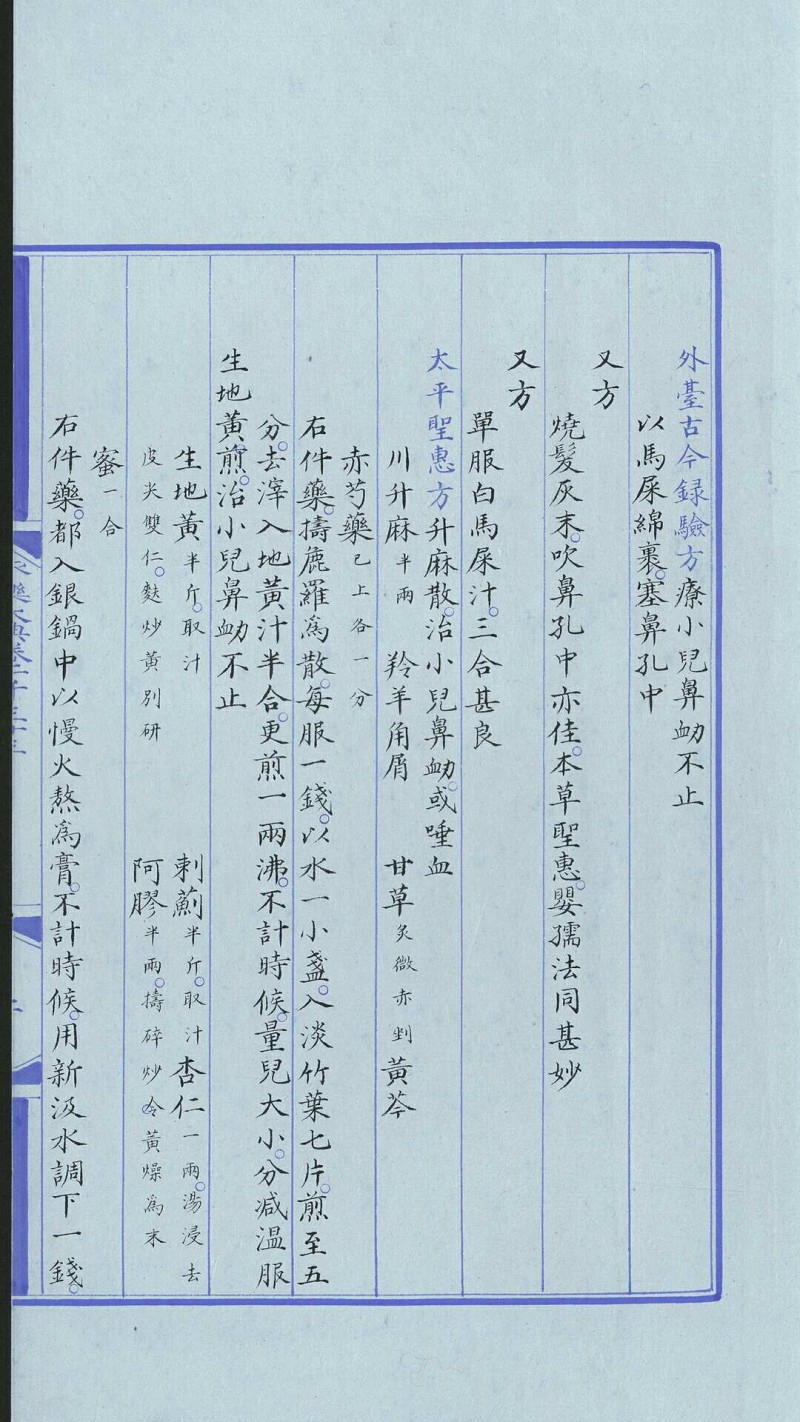 外臺古今録驗方療小兒鼻衂不止
以馬屎綿裹塞鼻孔中
又方
燒髮灰末吹鼻孔中亦佳本草聖惠嬰孺法同甚妙
又方
單服白馬屎汁三合甚良
太平聖惠方升麻散治小兒鼻衂或唾血
川升麻半兩 羚羊角屑 甘草炙微赤剉 黃芩
赤芍藥已上各一分
右件藥擣麁羅為散每服一錢以水一小盞入淡竹葉七片煎至五
分去滓入地黃汁半合更煎一兩沸不計時候量兒大小分減溫服
生地黃煎治小兒鼻衂不止
生地黃半斤取汁 刺薊半斤取汁 杏仁一兩湯浸去
皮尖雙仁麩炒黃別研 阿膠半兩擣碎炒令黃燥為末
蜜一合
右件藥都入銀鍋中以慢火熬為膏不計時候用新汲水調下一錢